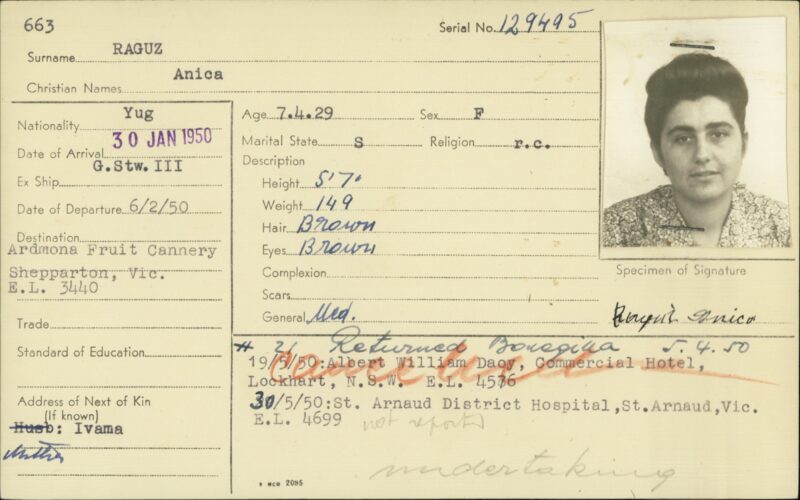 663
Serial No. 129495
Surname RAGUZ
Christian Names Anica
Nationality Yug
Date of Arrival 30 JAN 1950
Ex Ship G.Stw.III
Date of Departure 6/2/50
Destination
Ardmona Fruit Cannery
Shepparton, Vic.
E.L. 3440
Trade
Standard of Education
Address of Next of Kin
(If known)
Husb: Ivama
Mother
Age 7.4.29 Sex F
Marital State S Religion r.c.
Description
Height 5'7"
Weight 149
Hair Brown
Eyes Brown
Complexion
Scars
General Med.
Specimen of Signature
Raguž Anica
# 21 Returned Bonegilla 5.4.50
19/5/50:Albert William Daoy, Commercial Hotel,
Lockhart, N.S.W. E.L. 4576
Cancelled
30/5/50:St. Arnaud District Hospital,St.Arnaud,Vic.
E.L. 4699 not reported
undertaking
MCG 2085